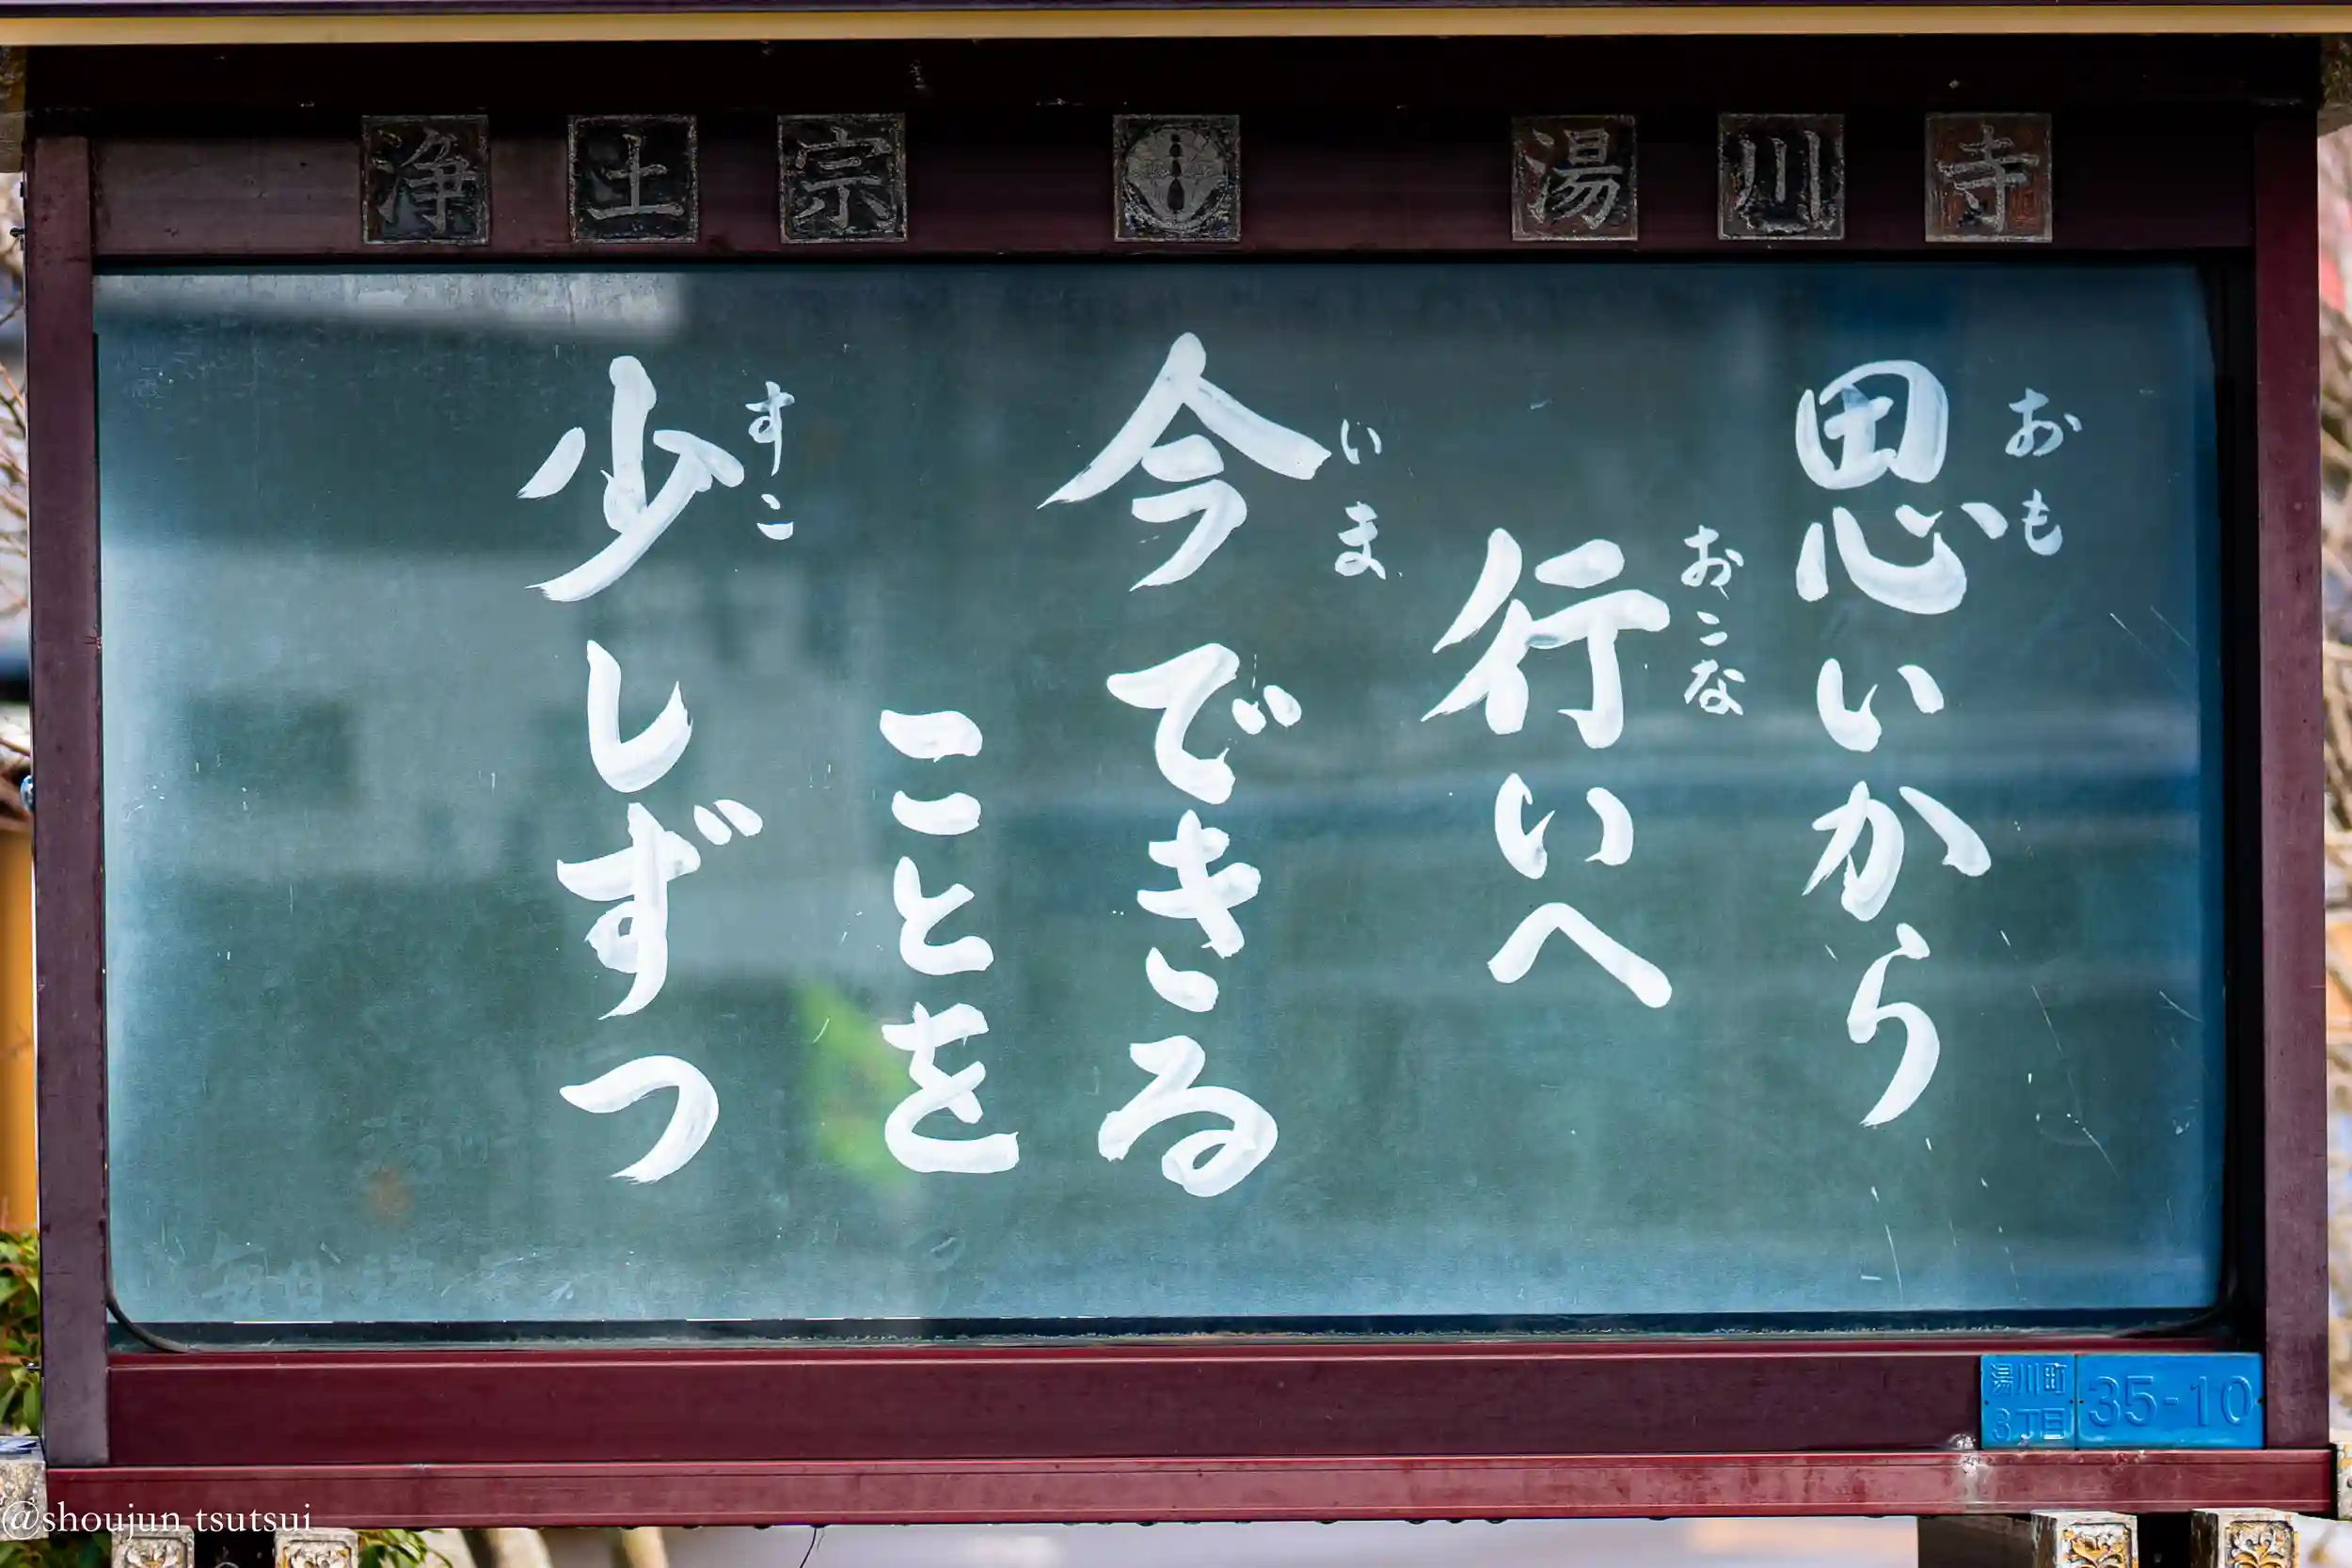 浄土宗 湯川寺
思いから
おも
行いへ
おこな
今できる
いま
ことを
少しずつ
すこ
湯川町
3丁目
35-10
@shoujun tsutsui